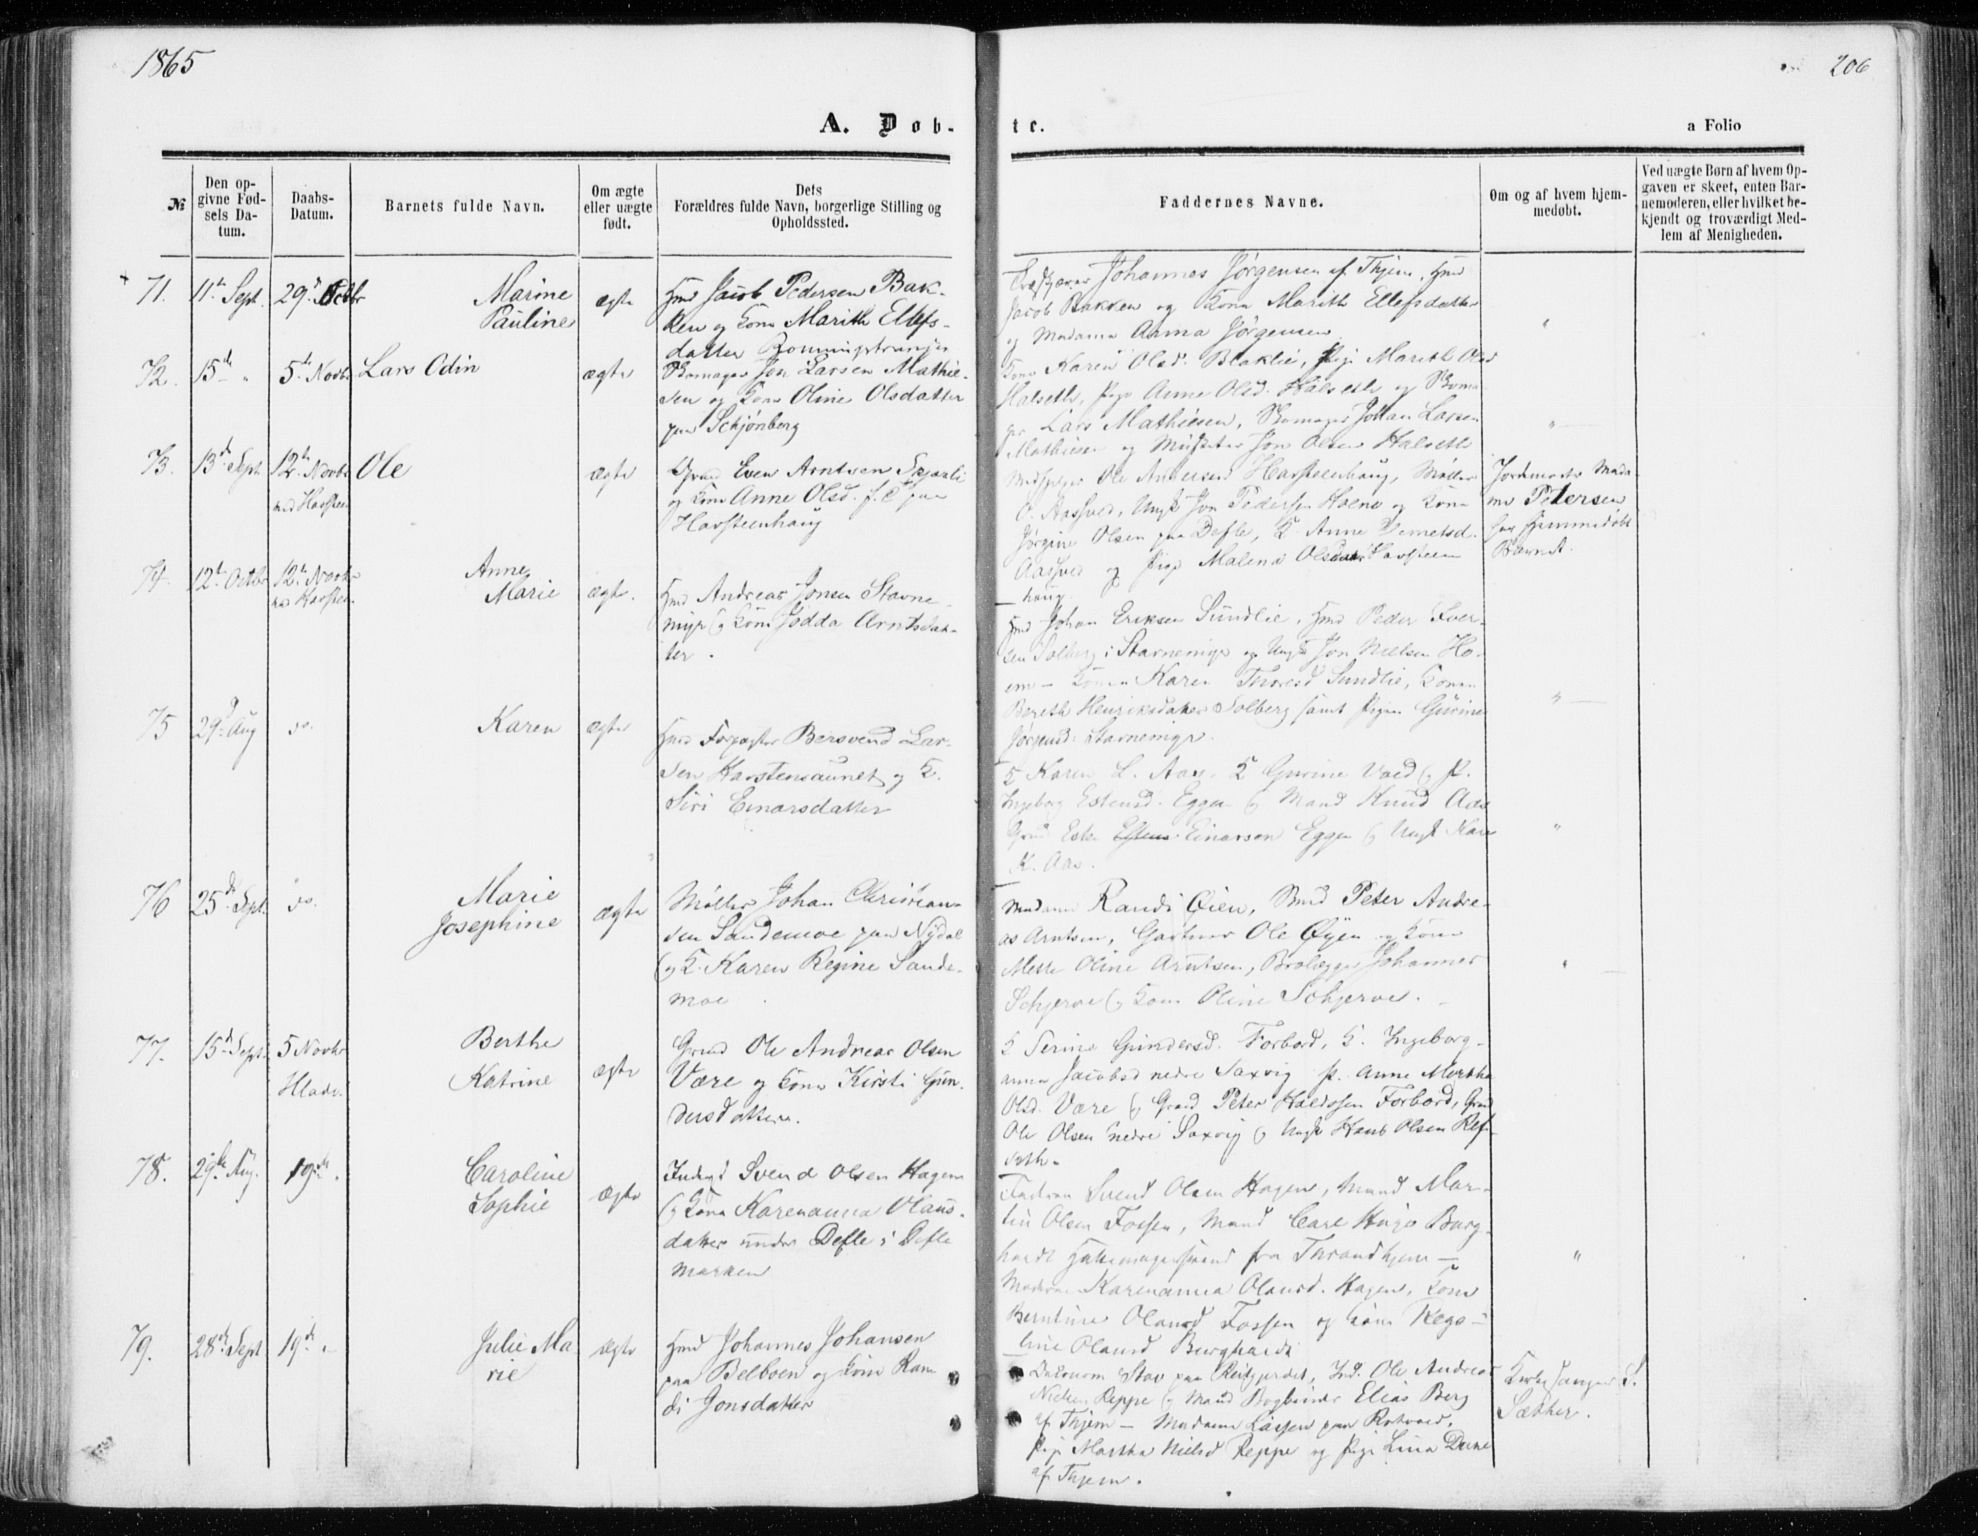 1865
206
A. Døb-
te.
a Folio
№
Den op-
givne Fød-
sels Da-
tum.
Daabs-
Datum.
Barnets fulde Navn.
Om ægte
eller uægte
født.
Dets
Forældres fulde Navn, borgerlige Stilling og
Opholdssted.
Faddernes Navne.
Om og af hvem hjem-
medøbt.
Ved uægte Børn af hvem Op-
gaven er skeet, enten Bar-
nemoderen, eller hvilket be-
kjendt og troværdigt Med-
lem af Menigheden.
71.
11te Sept.
29de Octbr
Marine
Pauline
ægte
Hmd Jacob Pedersen Bak-
ken og Kone Marith Ellefs-
datter
Johannes Jørgensen af Thjem, Hmd
Jacob Bakken og Kone Marith Ellefsdatter
og Madame Anna Jørgensen
72.
15de "
5te Novbr
Lars Odin
ægte
Skomager Jon Larsen Mathie-
sen og Kone Oline Olsdatter
paa Schjønberg
Kone Karen Olsd. Blaklie, Pige Marith Olsd
Halseth, Pige Anne Olsd. Halseth og Skoma-
ger Lars Mathiesen, Skomager Johan Larsen
Mathiesen og Jon Olsen Halseth
73.
13de Sept
12te Novbr
ved Havstein
Ole
ægte
Even Arntsen
og Kone Anne Olsd. paa
Havsteenhaug
Ole Andersen Havsteenhaug, Møller
O. Aasved, Ungk Jon Pedersen Hoene og Kone
Jørgine Olsen paa Defle, K Anne
Aasved og Pige Malena Olsdatter Havsteen
haug
Jordemoder Mada-
me Petersen
har hjemmedøbt
Barnet.
74.
12te Octbr
12te Novbr
ved Havstein
Anne
Marie
ægte.
Hmd Andreas Jonsen Stavne
myr og Kone Jødda Arntsdat-
ter.
Hmd Johan Eriksen Sundlie, Hmd Peder Iver-
sen Solberg i Stavnemyr og Ungk Jon Nielsen Ho-
em - Konen Karen Thoresd Sundlie, Konen
Bereth Henriksdatter Solberg samt Pigen Gurine
Jørgensd. Stavnemyr.
75
29de Aug
do.
Karen
ægte
Hmd Forpagter Bersvend Lar-
sen Havstensaunet og K.
Siri Einarsdatter
K Karen L. Aas, K Gurine Vaed og P.
Ingeborg Estensd. Eggen og Mand Knud Aas
Grmd Esten Einarsen Eggen og Ungk
K. Aas.
76
25de Sept.
do.
Marie
Josephine
ægte
Møller Johan Christian-
sen Sandemoe paa Nydal
og K. Karen Regine Sande-
moe
Madame Randi Øien, Peter Andre-
as Arntsen, Gartner Ole Øyen og Kone
Mette Oline Arntsen, Brolægger Johannes
Schjerve og Kone Oline Schjerve.
77.
15de Sept
5 Novbr
Hlade.
Berthe
Katrine
ægte
Grmd Ole Andreas Olsen
Være og Kone Kirsti Gun-
dersdatter.
K Serine Gundersd. Forbord, K. Ingeborg-
anna Jacobsd nedre Saxvig P. Anne Martha
Olsd. Være og Grmd Peter Haldosen Forbord, Grmd
Ole Olsen nedre Saxvig og Ungk Hans Olsen Ref-
seth.
78.
29de Aug.
19de.
Caroline
Sophie
ægte
Indsd Svend Olsen Hagen
og Kone Karenanna Olaus-
datter under Defle i Defle
marken
Faderen Svend Olsen Hagen, Mand Mar-
tin Olsen Fossen, Mand Carl Hugo Burg-
hardt fra Throndhjem -
Moderen Karenanna Olausd. Hagen, Kone
Berntine Olausd Fossen og Kone Rego-
line Olausd Burghardt
79.
28de Sept
19de "
Julie Ma
rie
ægte
Hmd Johannes Johansen
paa Belboen og Kone Ran
di Jonsdatter
Stav paa Reitgjerdet, Ind. Ole Andreas
Nielsen Reppe og Mand Bogbinder Elias Berg
af Thjem - Madame Larsen paa Rotvold,
Pige Martha Nielsd Reppe og Pige Lina Dune
af Thjem.
Kirkesanger S.
Sæther.